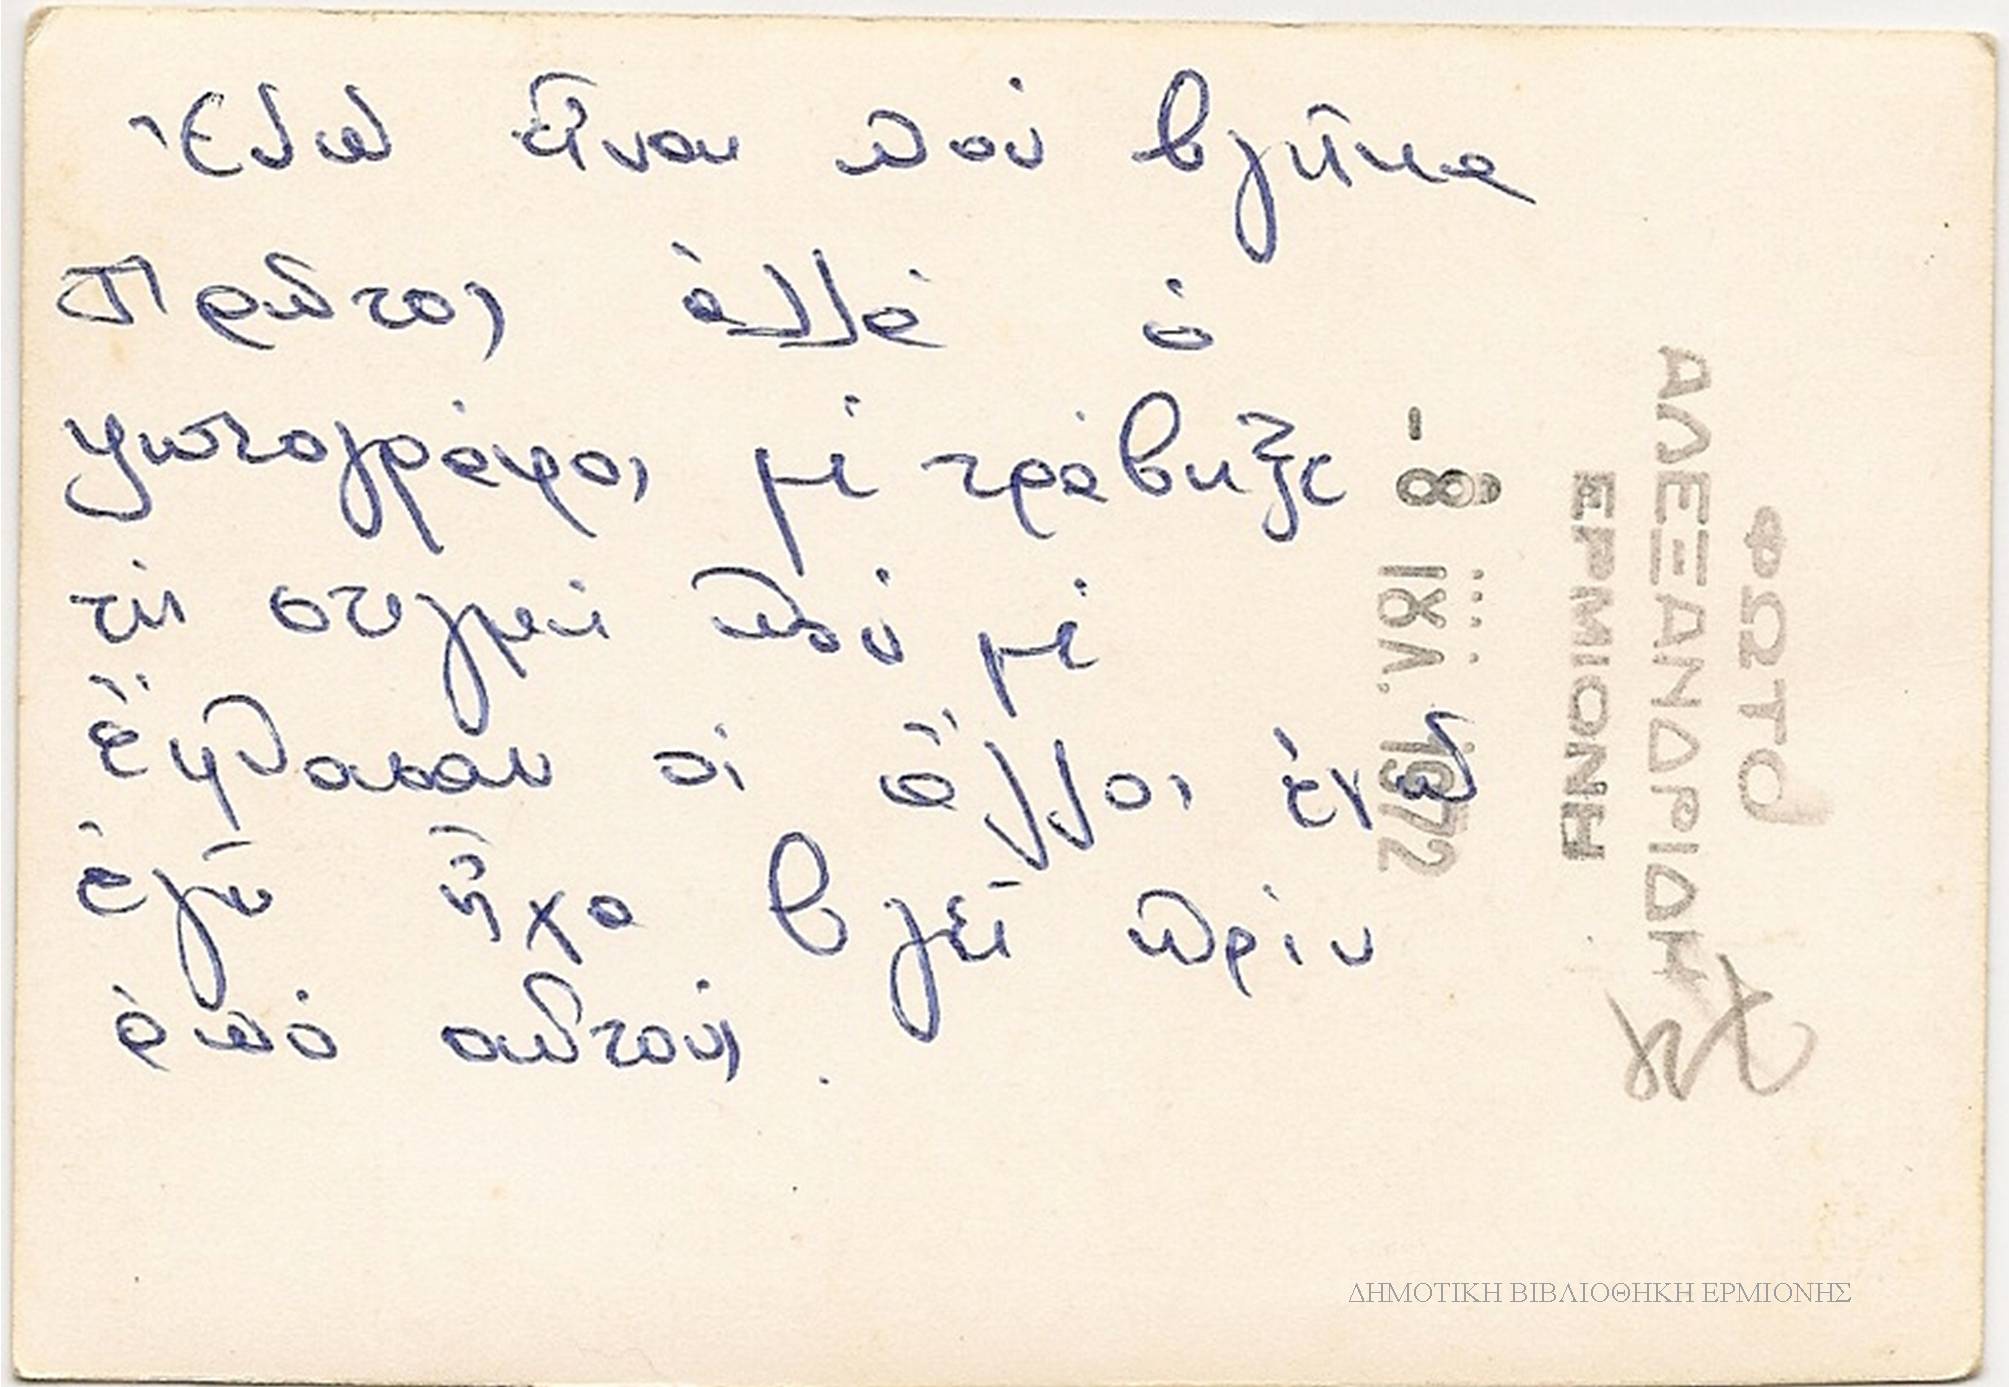 Ἐδῶ εἶναι ποὺ βγῆκα
πρῶτος ἀλλὰ ὁ
φωτογράφος μὲ τράβηξε
τὴ στιγμὴ ποὺ μὲ
ἔφθασαν οἱ ἄλλοι ἐνῶ
ἐγὼ ἦχα βγεῖ πρὶν
ἀπὸ αὐτούς.
ΦΩΤΟ
ΑΛΕΞΑΝΔΡΙΔΗ
ΕΡΜΙΟΝΗ
-8 ΙΟΥΛ. 1972
ΔΗΜΟΤΙΚΗ ΒΙΒΛΙΟΘΗΚΗ ΕΡΜΙΟΝΗΣ